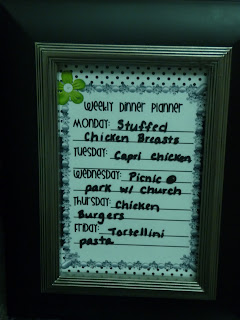 Weekly Dinner Planner
Monday: Stuffed
Chicken Breasts
Tuesday: Capri Chicken
Wednesday: Picnic @
park w/ church
Thursday: Chicken
Burgers
Friday: Tortellini
pasta